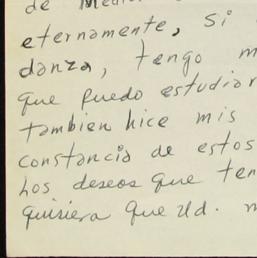 de Medic
eternamente, si
danza, tengo m
que puedo estudiar
tambien hice mis
constancia de estos
Los deseos que ten
quisiera que Ud. m